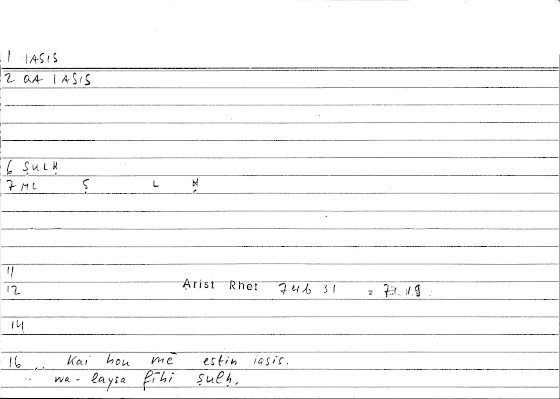 1 IASIS
2 aA IASIS
6 ṢULḤ
7 ML Ṣ L Ḥ
11
12 Arist Rhet 74b 31 = 71.19
14
16 .. Kai hou mē estin iasis.
.. wa-laysa fīhi ṣulḥ.